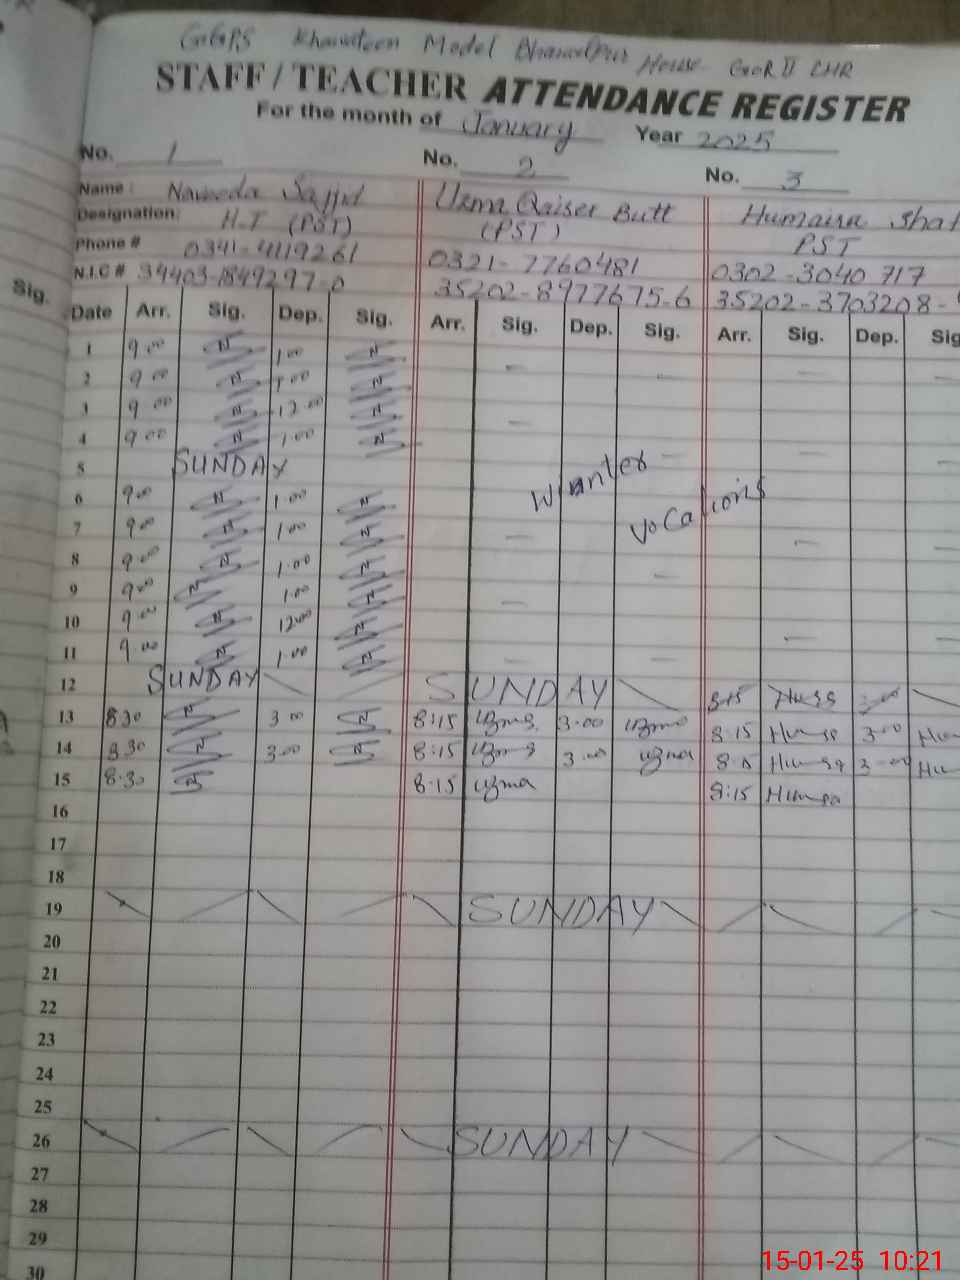 GGPS Khawateen Model Bhawalpur House GOR II LHR
STAFF / TEACHER ATTENDANCE REGISTER
For the month of January Year 2025
No. 1 No. 2 No. 3
Name: Naveeda Sajjid Uzma Qaiser Butt Humaira
Designation: H.T (PST) (PST) PST
Phone # 0341-4119261 0321-7760481 0302-3040717
N.I.C # 34403-1849297-0 35202-8977675-6 35202-3703208-
Sig.
Date Arr. Sig. Dep. Sig. Arr. Sig. Dep. Sig. Arr. Sig. Dep. Sig
1 9.00 N 1.00 N
2 9.00 N 1.00 N
3 9.00 N 12.00 N
4 9.00 N 1.00 N
5 SUNDAY
Wianter
6 9.00 N 1.00 N
vocations
7 9.00 N 1.00 N
8 9.00 N 1.00 N
9 9.00 N 1.00 N
10 9.00 N 12.00 N
11 9.00 N 1.00 N
12 SUNDAY SUNDAY
13 8.30 N 3.00 N 8:15 uzma 3.00 uzma 8:15 3.00
14 8.30 N 3.00 N 8:15 uzma 3.00 uzma 8:15 3.00
15 8.30 N 8:15 uzma 8:15
16
17
18
19 SUNDAY
20
21
22
23
24
25
26 SUNDAY
27
28
29
30
15-01-25 10:21